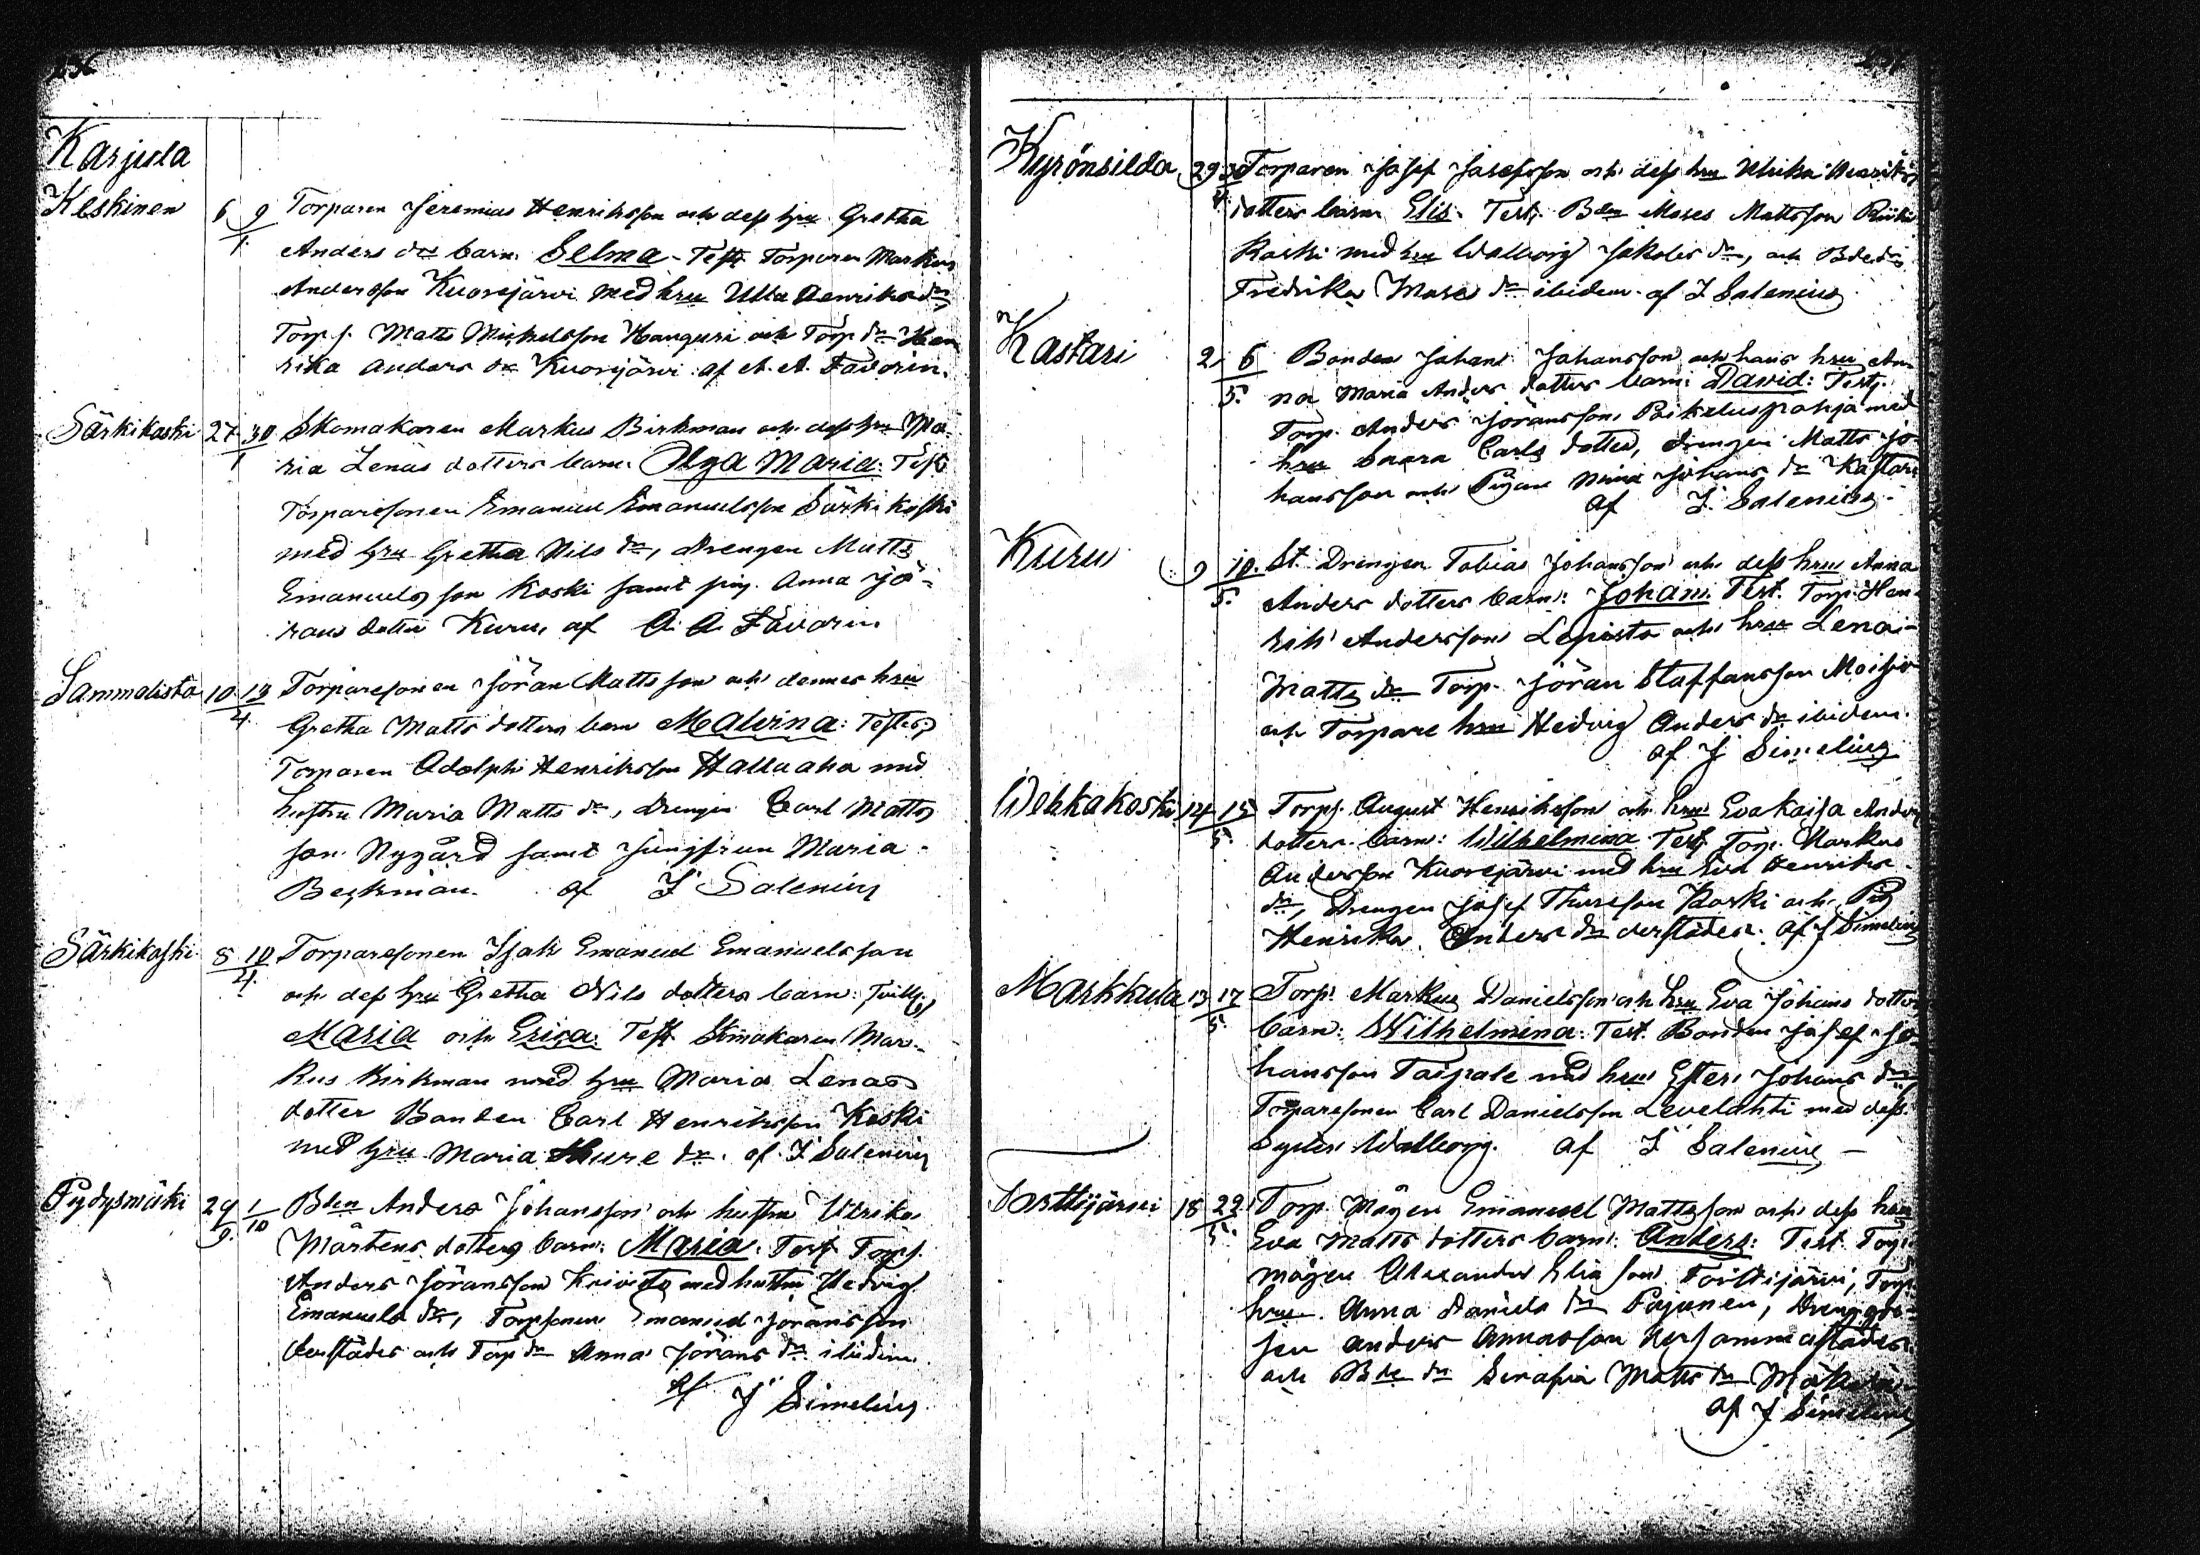 236
Karjula
Keskinen 6 9/1. Torparen Jeremias Henriksson och dess hru Gretha
Anders dr barn. Selma. Test. Torparen Markus
Andersson Kuorejärvi med hru Ulla Henriks dr,
Torp s. Matts Michelsson Hanguri och Torp dr Hen
rika Anders dr Kuorejärvi af A. A. Favorin.
Särkikoski 27 30/1 Skomakaren Markus Birkman och dess hru Ma-
ria Lenas dotters barn. Olga Maria: Test.
Torparesonen Emanuel Emanuelsson Särkikoski
med hru Gretha Nils dr, Drengen Matts
Emanuelsson Koski samt pig. Anna Jö-
rans dotter Kuru, af A. A. Favorin
Sammalisto 10 13/4. Torparesonen Jöran Mattsson och dennes hru
Gretha Matts dotters barn Malvina: Testes
Torparen Adolph Henriksson Hallaaha med
hustru Maria Matts dr, drengen Carl Matts
son Nygård samt Jungfrun Maria
Beckman. af I Salenius
Särkikoski 8 10/4. Torparesonen Isak Emanuel Emanuelsson
och dess hru Gretha Nils dotters barn: tvill.
Maria och Erica. Test Skomakaren Mar-
kus Birkman med hru Maria Lenas
dotter Bonden Carl Henriksson Koski
med hru Maria Thure dr. af I Salenius
Pydysmäki 29/9. 1/10 Bden Anders Johansson och hustru Ulrika
Mårtens dotters barn: Maria. Test Torp s.
Anders Jöransson Krivisto med hustru Hedvig
Emanuels dr, Torpsonen Emanuel Jöransson
derstädes och Torp dr Anna Jörans dr ibidem.
af J Simelius
237
Kyrönsilda 29 30/4. Torparen Josef Josefsson och dess hru Ulrika Henriks
dotters barn Elis. Test. Bden Moses Mattsson
Koski med hru Walborg Jakobs dr, och Bdedr
Fredrika Moses dr ibidem. af I Salenius
Kastari 2 6/5. Bonden Johan Johansson och hans hru An
na Maria Anders dotters barn: David: Test.
Torp. Anders Jöransson Poikeluspohja med
hru Saara Carls dotter, drengen Matts Jo
hansson och Pigan Mina Johans dr Kastari
af I. Salenius.
Kuru 9 10./5. St. Drengen Tobias Johansson och dess hru Anna
Anders dotters barn: Johan. Test. Torp. Hen
rik Andersson Lepisto och hru Lena
Matts dr Torp. Jöran Staffansson Moisio
och Torpare hru Hedvig Anders dr ibidem.
af J Simelius
Wehkakoski 14 15/5. Torp s. August Henriksson och hru Eva Kaisa Anders
dotters barn: Wilhelmina Test. Torp. Markus
Andersson Kuorejärvi med hru Eva Henriks
dr, Drengen Josef Thuresson Koski och Pig
Henrika Anders dr derstädes. af J Simelius
Markkula 13 17/5. Torp. Markus Danielsson och hru Eva Johans dotters
barn: Wilhelmina: Test. Bonden Josef Jo
hansson Taipale med hru Ester Johans dr
Torparesonen Carl Danielsson Levelahti med dess
Syster Walborg. af I Salenius –
Torttijärvi 18 22/5. Torp. Mågen Emanuel Mattsson och dess hru
Eva Matts dotters barn. Anders: Test. Torp
mågen Alexander Eliasson Torttijärvi, Torp.
hru. Anna Daniels dr Pajunen, Drenggos-
sen Anders Annasson hersammastädes
och Bde dr Serafia Matts dr
af J Simelius